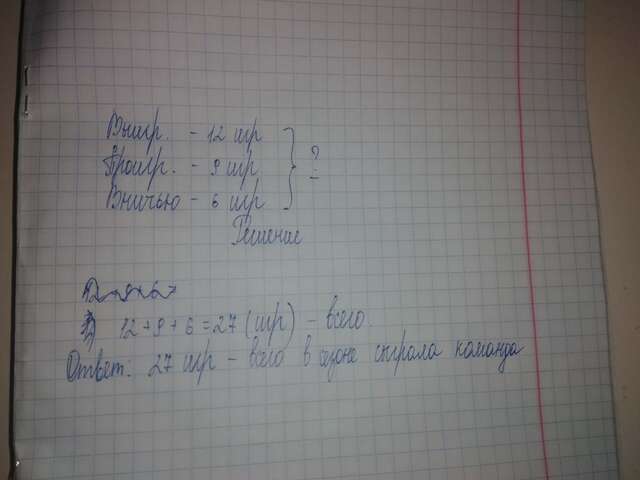 Выигр. - 12 игр
Проигр. - 9 игр
Вничью - 6 игр
?
Решение
12+9+6=27 (игр) - всего.
Ответ: 27 игр - всего в сезоне сыграла команда